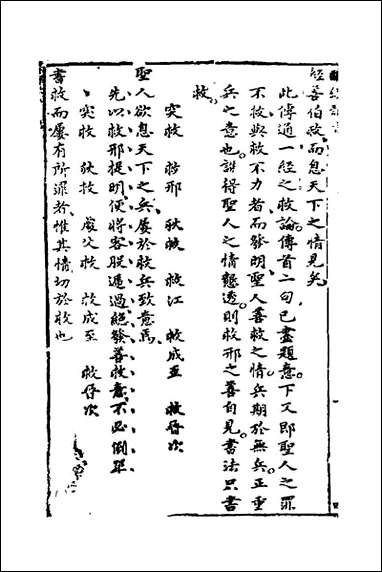 經善伯救而息天下之情見矣
此傳通一經之救論傳首二句已盡題意下又即聖人之罪
不救與救不力者而發明聖人善救之情兵期於無兵正重
兵之意也講得聖人之情懇透則救邢之善自見書法只書
救
突救 救邢 狄救 救江 救成至 救台次
聖人欲息天下之兵屢於救兵致意焉
先以救邢提明便將容脫遞過總發善救意不必倒單
突救 狄救 處父救 救成至 救台次
書救而屢有所罪者惟其情切於救也